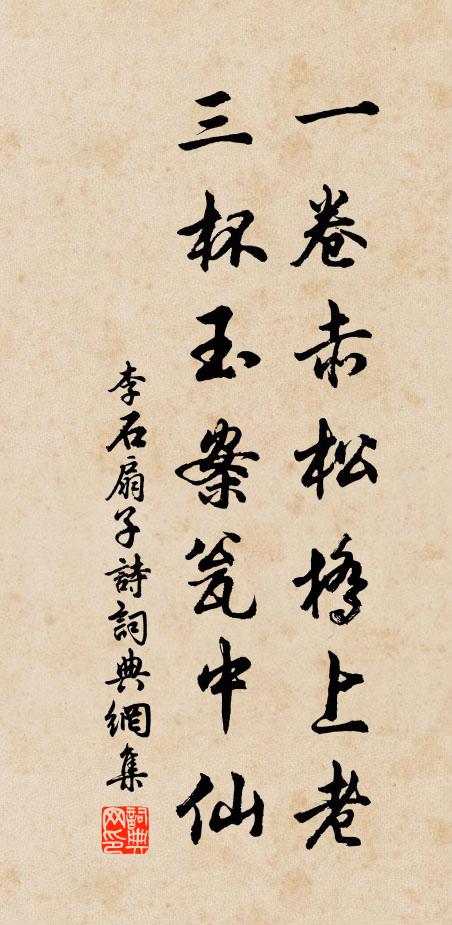 一卷赤松橋上老
三杯玉案瓮中仙
李石扇子詩詞典網集
詞典網印